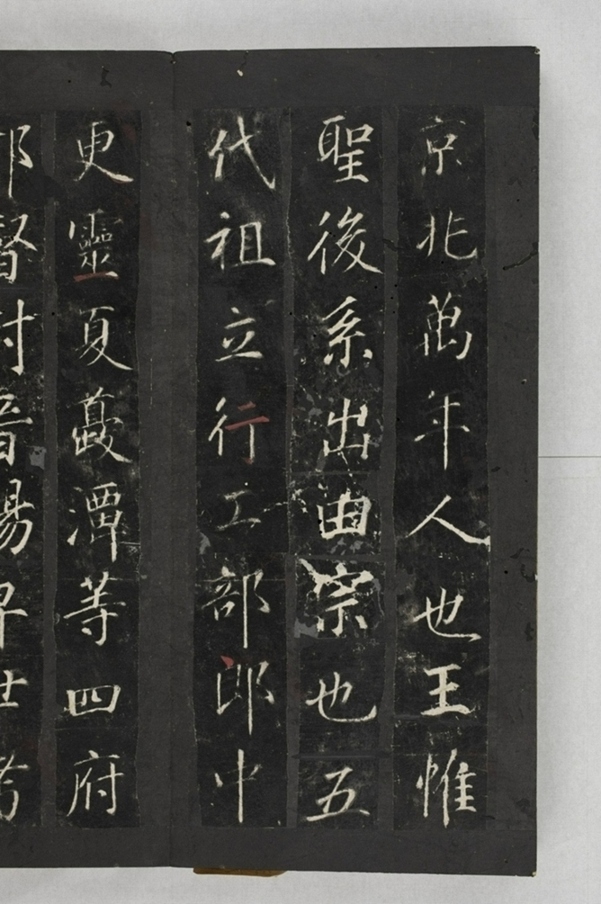 京兆萬年人也王惟
聖後系出由宗也五
代祖立行工部郎中
更靈夏夔潭等四府
都督封晉陽